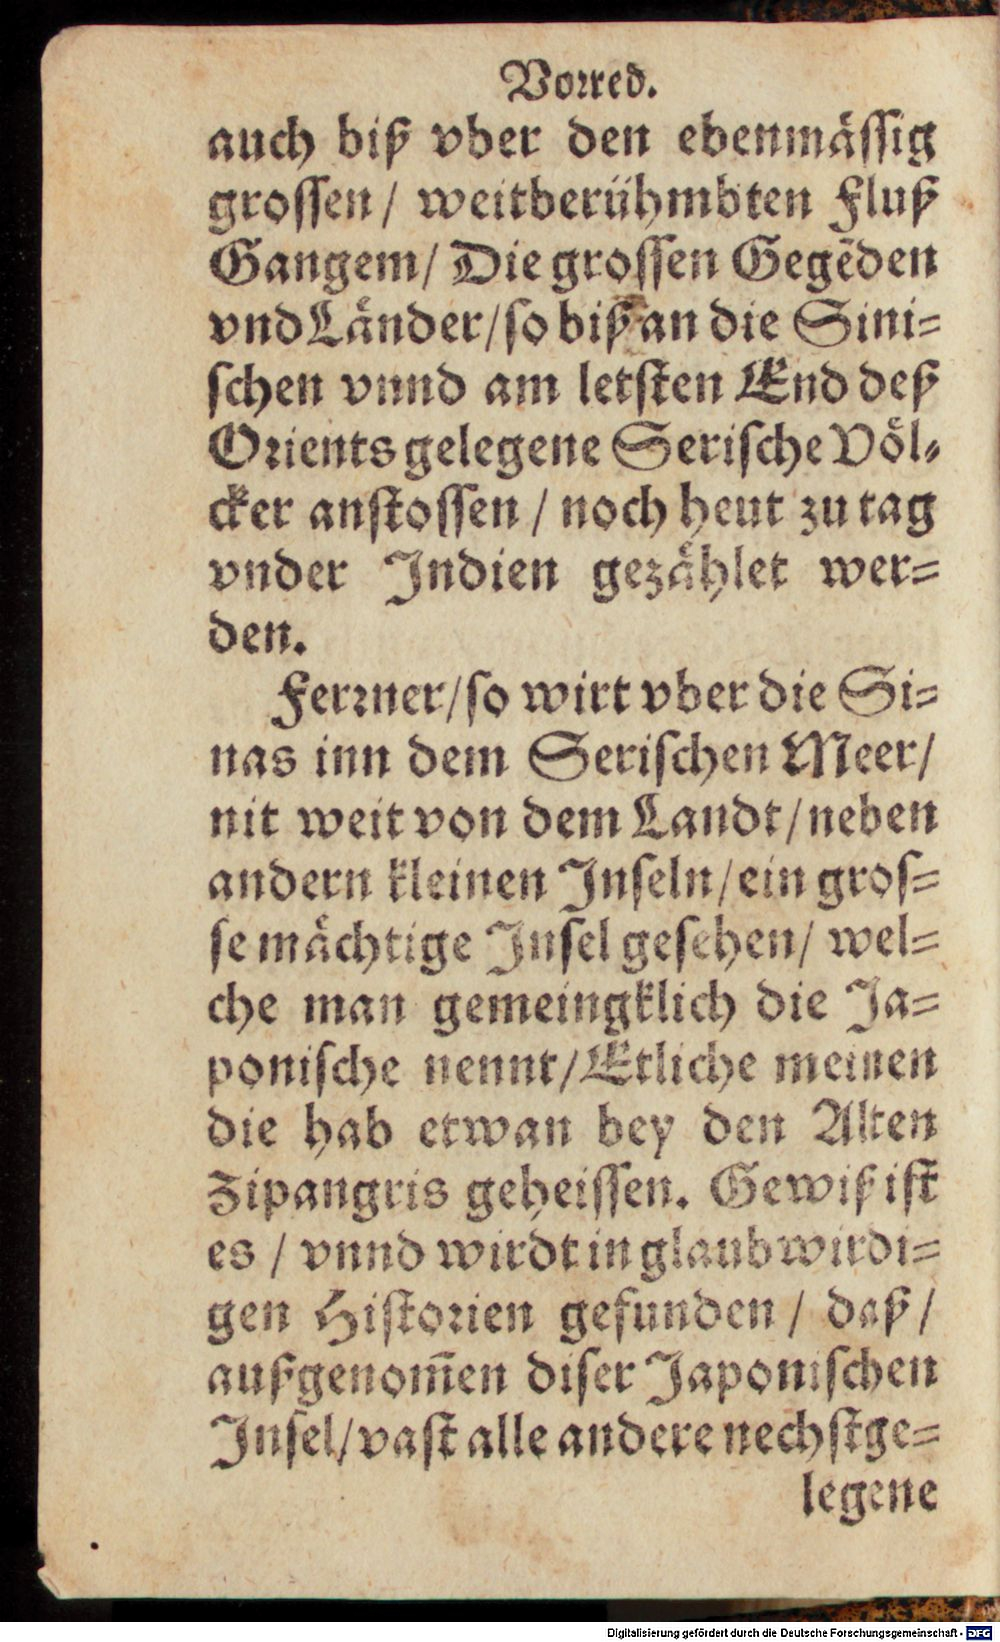 Vorred.
auch biß vber den ebenmässig
grossen / weitberühmbten Fluß
Gangem / Die grossen Gegẽden
vnd Länder / so biß an die Sini=
schen vnnd am letsten End deß
Orients gelegene Serische Völ=
cker anstossen / noch heut zu tag
vnder Indien gezählet wer=
den.
Ferrner / so wirt vber die Si=
nas inn dem Serischen Meer /
nit weit von dem Landt / neben
andern kleinen Inseln / ein gros=
se mächtige Insel gesehen / wel=
che man gemeingklich die Ja=
ponische nennt / Etliche meinen
die hab etwan bey den Alten
Zipangris geheissen. Gewiß ist
es / vnnd wirdt in glaubwirdi=
gen Historien gefunden / daß /
außgenom̃en diser Japonischen
Insel / vast alle andere nechstge=
legene
Digitalisierung gefördert durch die Deutsche Forschungsgemeinschaft - DFG